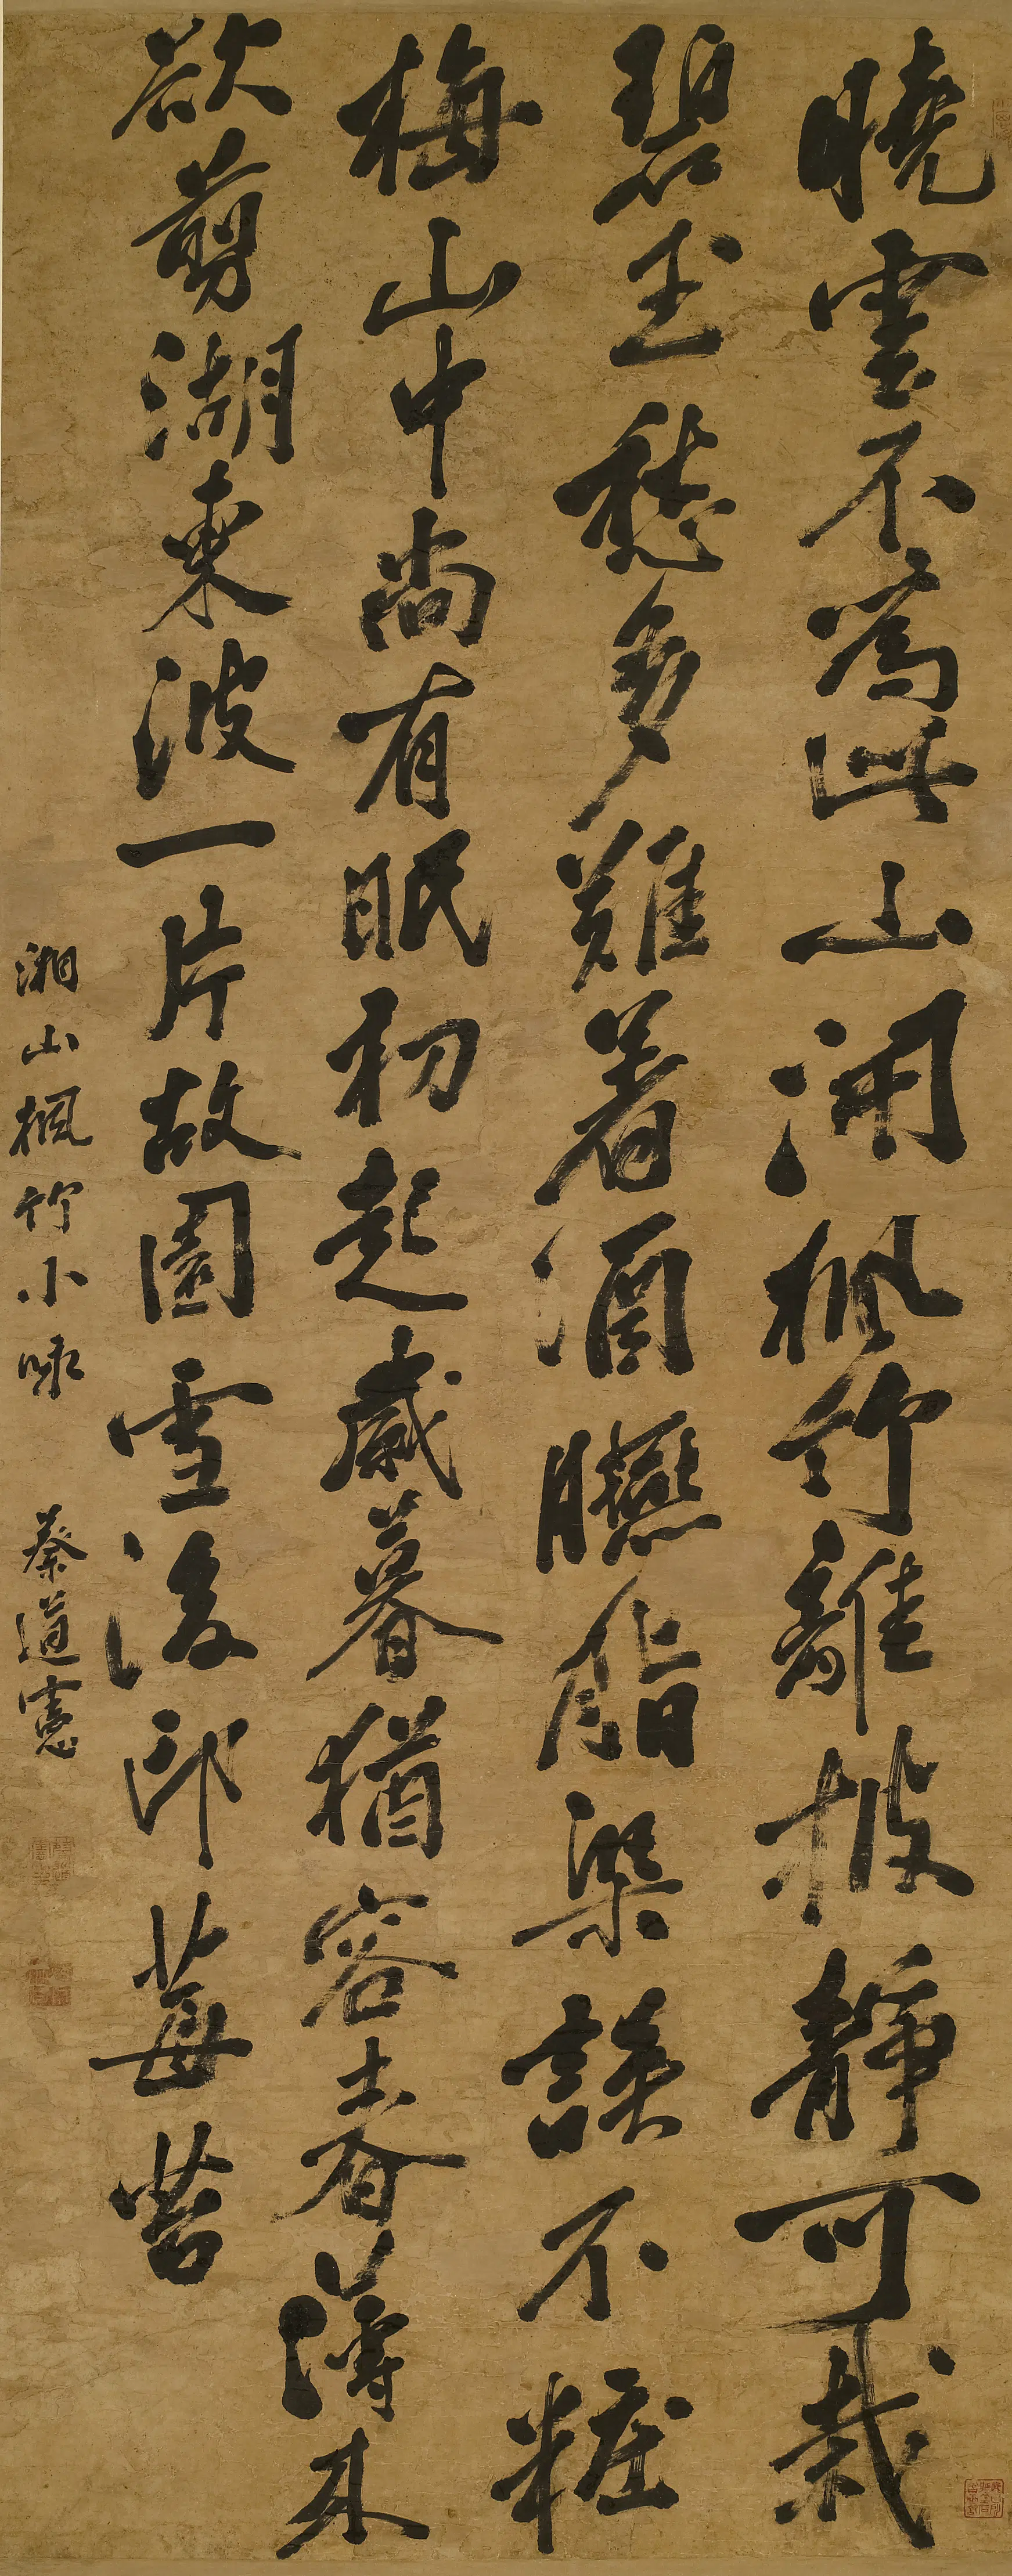 曉雲不為此山開楓竹離披靜可栽
碧玉愁多難着酒臙脂染誤不糚
梅山中尚有眠初起歲暮猶容春薄來
欲剪湖東波一片故園雪後印莓苔
湘山楓竹小咏 蔡道憲